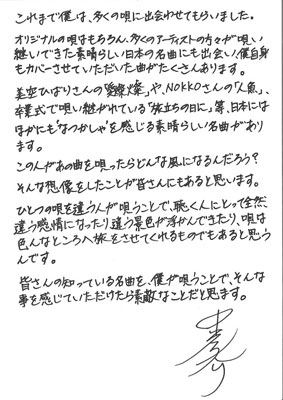 これまで僕は、多くの唄に出会わせてもらいました。
オリジナルの唄はもちろん、多くのアーティストの方々が唄い
継いできた素晴らしい日本の名曲にも出会い、僕自身
もカバーさせていただいた曲がたくさんあります。
美空ひばりさんの「愛燦燦」や、NOKKOさんの「人魚」、
卒業式で唄い継がれている「旅立ちの日に」等、日本には
ほかにも"なつかしゃ"を感じる素晴らしい名曲があり
ます。
この人があの曲を唄ったらどんな風になるんだろう?
そんな想像をしたことが皆さんにもあると思います。
ひとつの唄を違う人が唄うことで、聴く人にとって全然
違う感情になったり、違う景色が浮かんできたり、唄は
色んなところへ旅をさせてくれるものでもあると思う
んです。
皆さんの知っている名曲を、僕が唄うことで、そんな
事を感じていただけたら素敵なことだと思います。